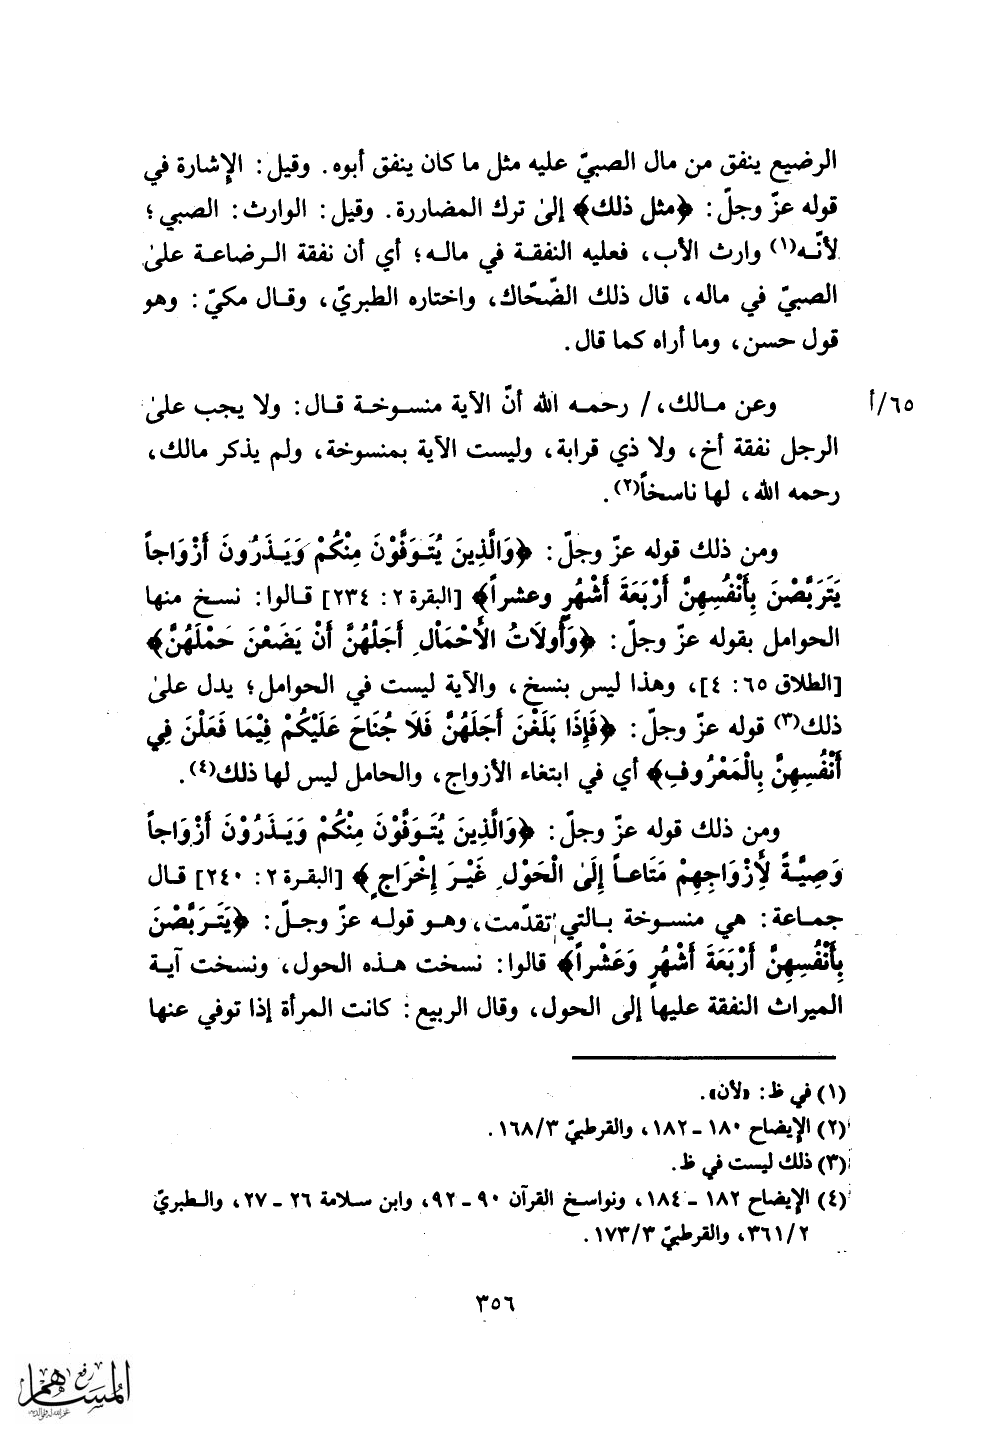 الرضيع ينفق من مال الصبيّ عليه مثل ما كان ينفق أبوه. وقيل: الإشارة في
قوله عزّ وجلّ: ﴿مثل ذلك﴾ إلىٰ ترك المضاررة. وقيل: الوارث: الصبي؛
لأنّه(١) وارث الأب، فعليه النفقة في ماله؛ أي أن نفقة الرضاعة علىٰ
الصبيّ في ماله، قال ذلك الضّحّاك، واختاره الطبريّ، وقال مكيّ: وهو
قول حسن، وما أراه كما قال.
٦٥/أ
وعن مالك،/ رحمه الله أنّ الآية منسوخة قال: ولا يجب علىٰ
الرجل نفقة أخ، ولا ذي قرابة، وليست الآية بمنسوخة، ولم يذكر مالك،
رحمه الله، لها ناسخاً(٢).
ومن ذلك قوله عزّ وجلّ: ﴿وَالَّذِينَ يُتَوَفَّوْنَ مِنْكُمْ وَيَذَرُونَ أَزْوَاجاً
يَتَرَبَّصْنَ بِأَنْفُسِهِنَّ أَرْبَعَةَ أَشْهُرٍ وعشراً﴾ [البقرة ٢: ٢٣٤] قالوا: نسخ منها
الحوامل بقوله عزّ وجلّ: ﴿وَأُولَاتُ الْأَحْمَالِ أَجَلُهُنَّ أَنْ يَضَعْنَ حَمْلَهُنَّ﴾
[الطلاق ٦٥: ٤]، وهذا ليس بنسخ، والآية ليست في الحوامل؛ يدل علىٰ
ذلك(٣) قوله عزّ وجلّ: ﴿فَإِذَا بَلَغْنَ أَجَلَهُنَّ فَلَا جُنَاحَ عَلَيْكُمْ فِيْمَا فَعَلْنَ فِي
أَنْفُسِهِنَّ بِالْمَعْرُوفِ﴾ أي في ابتغاء الأزواج، والحامل ليس لها ذلك(٤).
ومن ذلك قوله عزّ وجلّ: ﴿وَالَّذِينَ يُتَوَفَّوْنَ مِنْكُمْ وَيَذَرُوْنَ أَزْوَاجاً
وَصِيَّةً لِأَزْوَاجِهِمْ مَتَاعاً إِلَىٰ الْحَوْلِ غَيْرَ إِخْرَاجٍ﴾ [البقرة ٢: ٢٤٠] قال
جماعة: هي منسوخة بالتي تقدّمت، وهو قوله عزّ وجلّ: ﴿يَتَرَبَّصْنَ
بِأَنْفُسِهِنَّ أَرْبَعَةَ أَشْهُرٍ وَعَشْراً﴾ قالوا: نسخت هذه الحول، ونسخت آية
الميراث النفقة عليها إلى الحول، وقال الربيع: كانت المرأة إذا توفي عنها
(١) في ظ: «لأن».
(٢) الإيضاح ١٨٠ - ١٨٢، والقرطبيّ ١٦٨/٣.
(٣) ذلك ليست في ظ.
(٤) الإيضاح ١٨٢ - ١٨٤، ونواسخ القرآن ٩٠ - ٩٢، وابن سلامة ٢٦ - ٢٧، والطبريّ
٣٦١/٢، والقرطبيّ ١٧٣/٣.
٣٥٦
رفع
المساهم